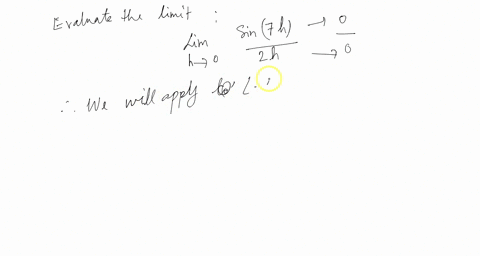 Evaluate the limit :
Lim h→0 sin(7h) / 2h → 0 / → 0
∴ We will apply L.